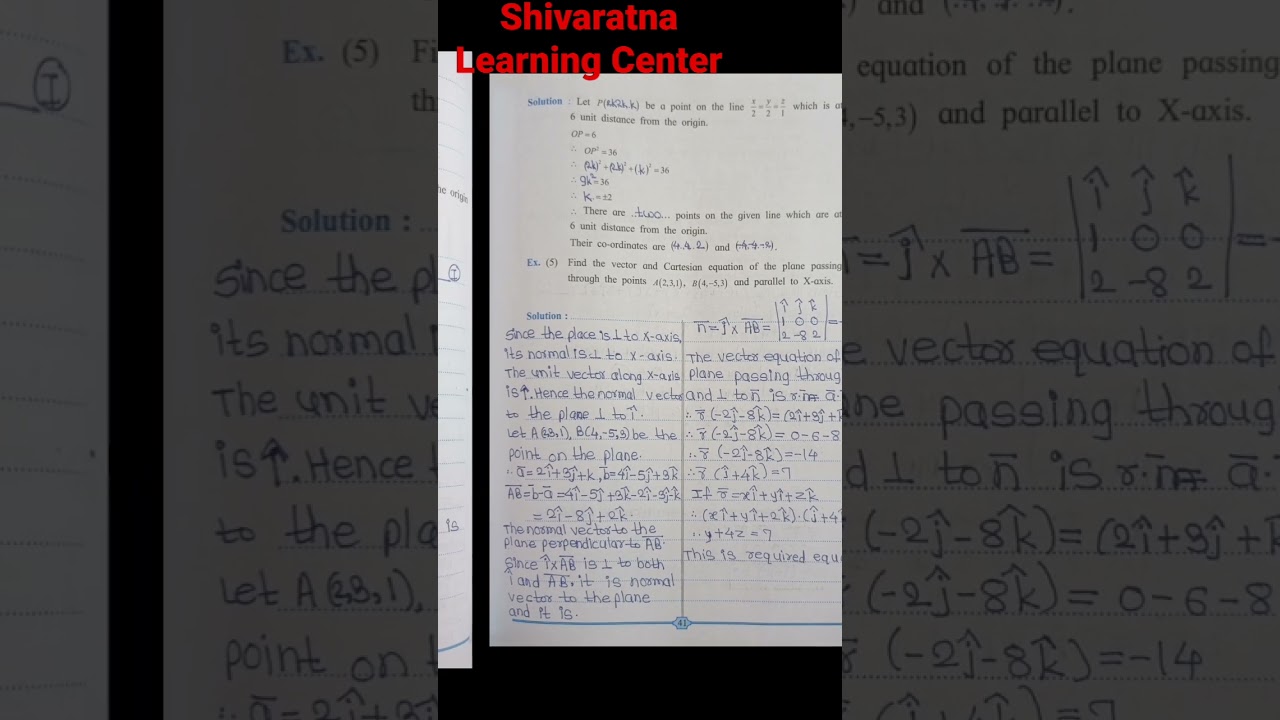 Shivaratna
Learning Center
Solution : Let P(2k, 2k, k) be a point on the line x/2 = y/2 = z/1 which is at
6 unit distance from the origin.
OP = 6
∴ OP² = 36
∴ (2k)² + (2k)² + (k)² = 36
∴ 9k² = 36
∴ K = ±2
∴ There are ..two... points on the given line which are at
6 unit distance from the origin.
Their co-ordinates are (4.4.2) and (-4.-4.-2).
Ex. (5) Find the vector and Cartesian equation of the plane passing
through the points A(2,3,1), B(4,-5,3) and parallel to X-axis.
Solution :
since the place is ⊥ to x-axis,
its normal is ⊥ to x-axis.
The unit vector along x-axis
is ↑. Hence the normal vector
to the plane ⊥ to î.
Let A(2,3,1), B(4,-5,3) be the
point on the plane.
∴ a̅ = 2î+3ĵ+k, b̅ = 4î-5ĵ+3k̂
A̅B̅ = b̅-a̅ = 4î-5ĵ+3k̂-2î-3ĵ-k
= 2î-8ĵ+2k̂
The normal vector to the
plane perpendicular to A̅B̅
since î×A̅B̅ is ⊥ to both
î and A̅B̅, it is normal
vector to the plane
and it is.
n̅ = ĵ × A̅B̅ = | î ĵ k̂ | = -
1 0 0
2 -8 2
The vector equation of
plane passing throug
and ⊥ to n̅ is r.n̅= a̅.
∴ r̅ (-2ĵ-8k̂) = (2î+3ĵ+k
∴ r̅ (-2ĵ-8k̂) = 0-6-8
∴ r̅ (-2ĵ-8k̂) = -14
∴ r̅ (ĵ+4k̂) = 7
If r̅ = xî+yî+zk̂
∴ (xî+yî+2k̂).(ĵ+4k
∴ y+4z = 7
This is required equ
41